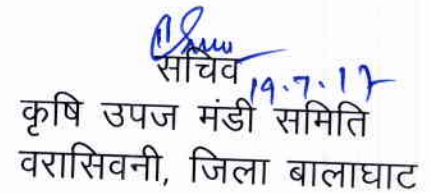 सचिव
19.7.17
कृषि उपज मंडी समिति
वरासिवनी, जिला बालाघाट